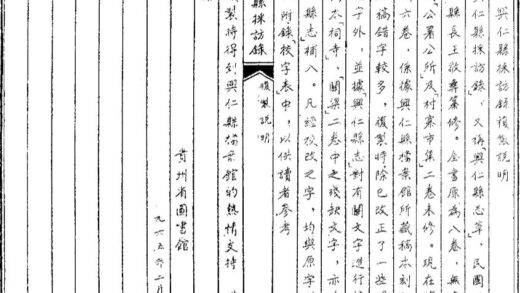 興仁縣採訪錄復製說明
興仁縣採訪錄，又稱「興仁縣志草」，民國
縣長王敬彝纂修。全書原為八卷，無
「公署公所」及「村寨市集」二卷未修。現在
六卷，係據興仁縣檔案館所藏稿本刻
稿錯字較多，復製時除已改正了一些
字外，並據「興仁縣志」對有關文字進行
「祠寺」、「關梁」二卷中之殘缺文字，亦
縣志補入。凡經校改之字，均與原字
附錄校字表中，以供讀者參考
縣採訪錄
復製說明
製時得到興仁縣檔案館的熱情支持
貴州省圖書館
九六五年二月